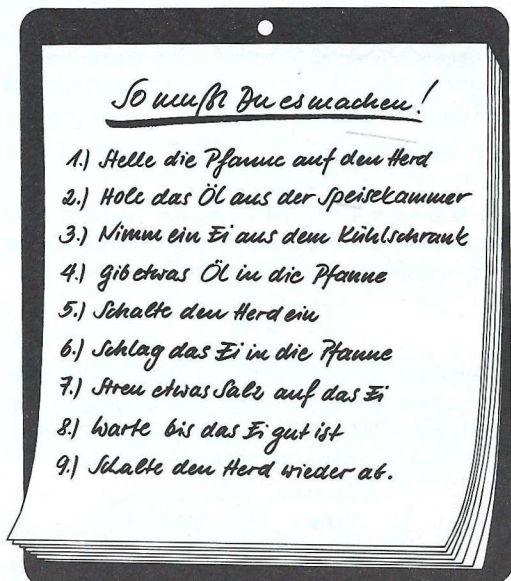 So mußt Du es machen!
1.) Stelle die Pfanne auf den Herd
2.) Hole das Öl aus der Speisekammer
3.) Nimm ein Ei aus dem Kühlschrank
4.) Gib etwas Öl in die Pfanne
5.) Schalte den Herd ein
6.) Schlag das Ei in die Pfanne
7.) Streu etwas Salz auf das Ei
8.) Warte bis das Ei gut ist
9.) Schalte den Herd wieder ab.